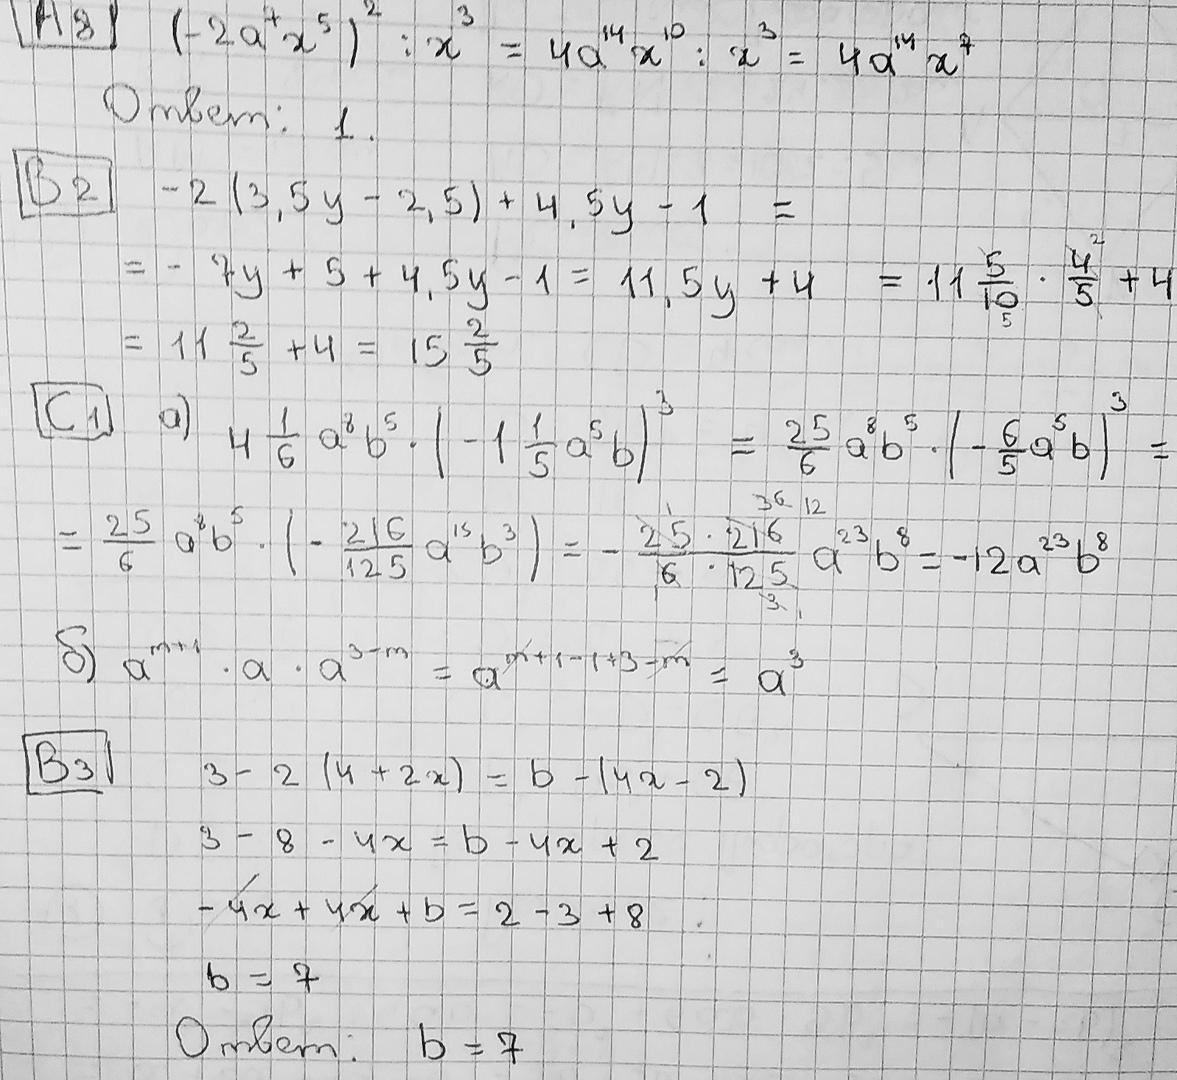 A8 (-2a⁷x⁵)² : x³ = 4a¹⁴x¹⁰ : x³ = 4a¹⁴x⁷
Ответ: 1.
B2 -2(3,5y - 2,5) + 4,5y - 1 =
= - 7y + 5 + 4,5y - 1 = 11,5y + 4 = 11 5/10 · 4/5 + 4
= 11 2/5 + 4 = 15 2/5
C1 а) 4 1/6 a⁸b⁵ · (-1 1/5 a⁵b)³ = 25/6 a⁸b⁵ · (-6/5 a⁵b)³ =
= 25/6 a⁸b⁵ · (- 216/125 a¹⁵b³) = - (25 · 216)/(6 · 125) a²³b⁸ = -12a²³b⁸
б) aᵐ⁺¹ · a · a³⁻ᵐ = aᵐ⁺¹⁻¹⁺³⁻ᵐ = a³
B3 3 - 2(4 + 2x) = b - (4x - 2)
3 - 8 - 4x = b - 4x + 2
-4x + 4x + b = 2 - 3 + 8
b = 7
Ответ: b = 7